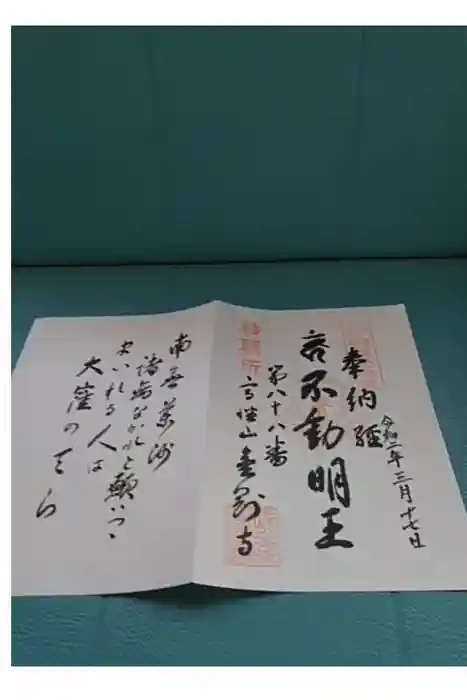 令和二年三月十七日
奉納経
不動明王
第八十八番
山 寺
結願所
南無薬師
諸病なかれと願いつゝ
まいれる人は
大窪のてら